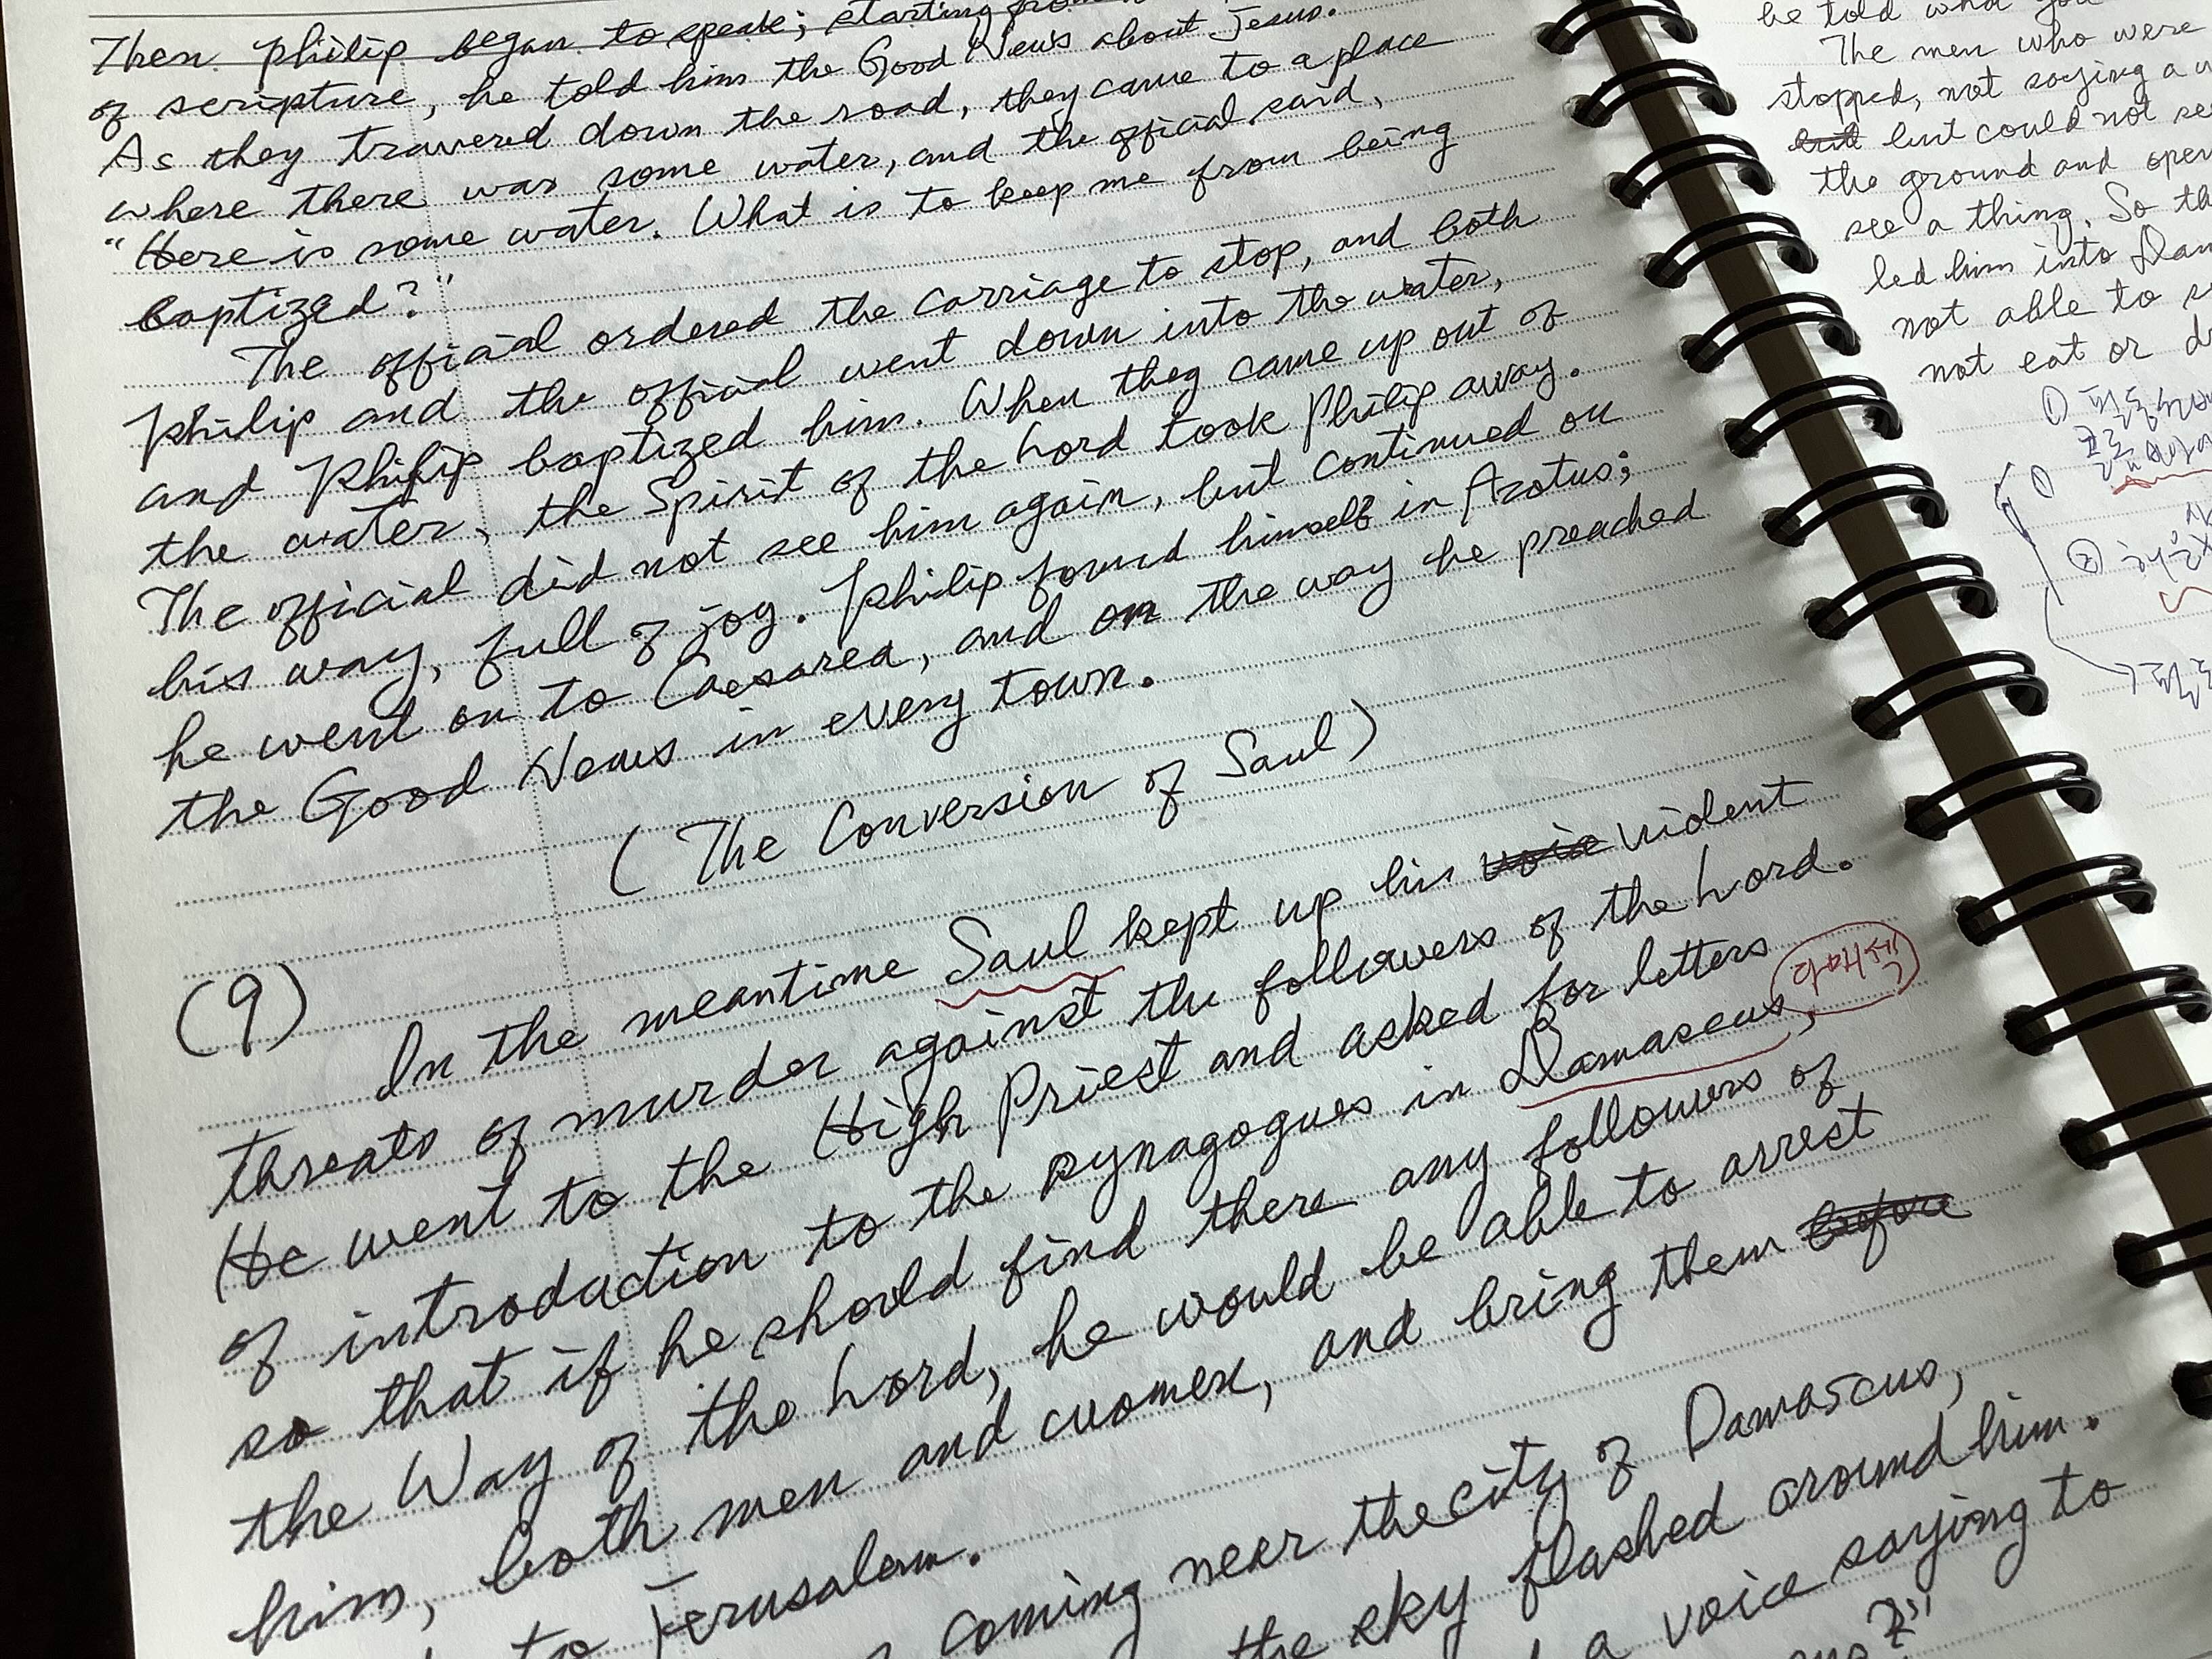 Then philip began to speak; starting from
of scripture, he told him the Good News about Jesus.
As they travered down the road, they came to a place
where there was some water, and the official said,
"Here is some water. What is to keep me from being
baptized?"
The official ordered the carriage to stop, and both
Philip and the official went down into the water,
and Philip baptized him. When they came up out of
the water, the Spirit of the Lord took Philip away.
The official did not see him again, but continued on
his way, full of joy. Philip found himself in Azotus;
he went on to Caesarea, and on the way he preached
the Good News in every town.
(The Conversion of Saul)
(9)
In the meantime Saul kept up his vident
threats of murder against the followers of the Lord.
He went to the High Priest and asked for letters
다메섹
of introduction to the synagogues in Damascus,
so that if he should find there any followers of
the Way of the Lord, he would be able to arrest
him, both men and women, and bring them before
to Jerusalem.
coming near the city of Damascus,
the sky flashed around him.
a voice saying to
he told what you
The men who were
stopped, not saying a
but but could not
the ground and
see a thing. So
led him into
not able to
not eat or
①
②